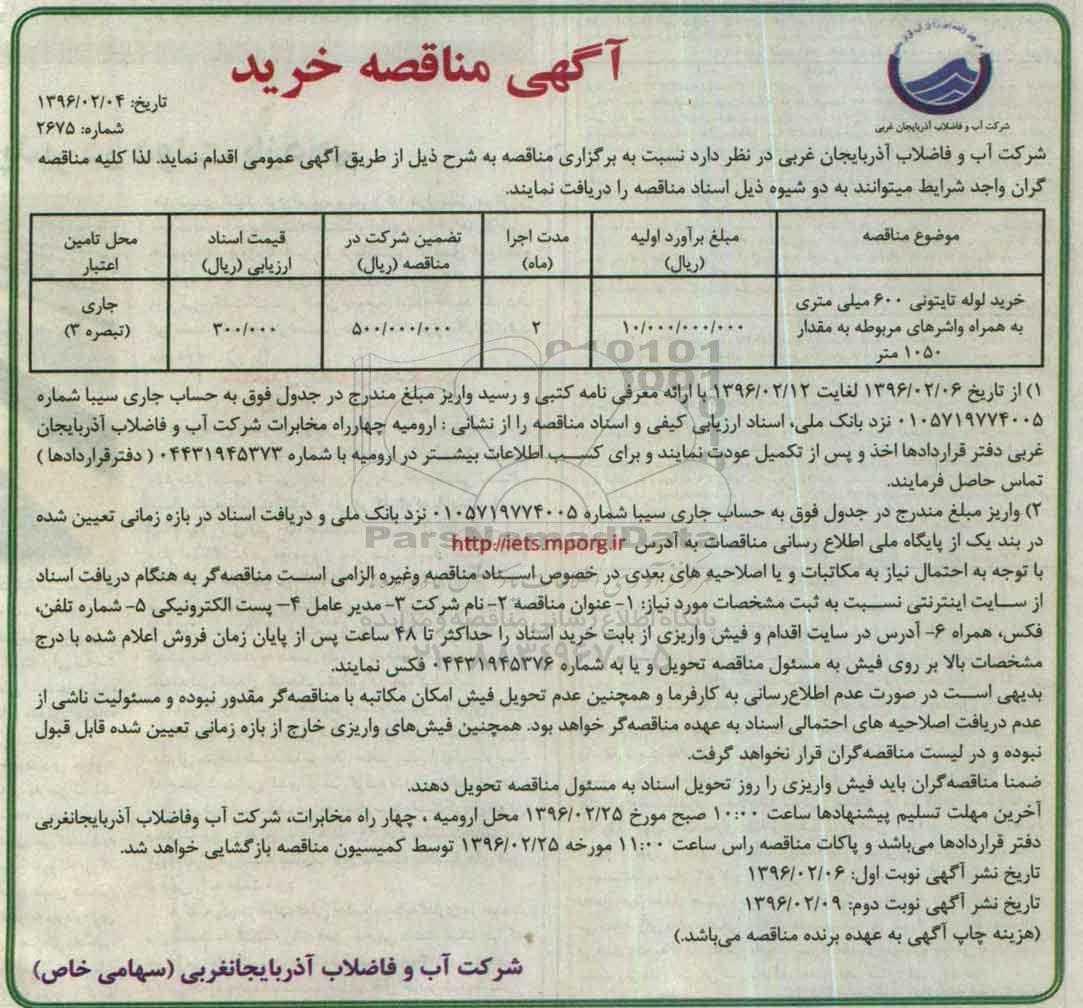 آگهی مناقصه خرید
تاریخ: ۱۳۹۶/۰۲/۰۴
شماره: ۲۶۷۵
شرکت آب و فاضلاب آذربایجان غربی
شرکت آب و فاضلاب آذربایجان غربی در نظر دارد نسبت به برگزاری مناقصه به شرح ذیل از طریق آگهی عمومی اقدام نماید. لذا کلیه مناقصه
گران واجد شرایط میتوانند به دو شیوه ذیل اسناد مناقصه را دریافت نمایند.
موضوع مناقصه
مبلغ برآورد اولیه
(ریال)
مدت اجرا
(ماه)
تضمین شرکت در
مناقصه (ریال)
قیمت اسناد
ارزیابی (ریال)
محل تامین
اعتبار
خرید لوله تایتونی ۶۰۰ میلی متری
به همراه واشرهای مربوطه به مقدار
۱۰۵۰ متر
۱۰/۰۰۰/۰۰۰/۰۰۰
۲
۵۰۰/۰۰۰/۰۰۰
۳۰۰/۰۰۰
جاری
(تبصره ۳)
۱) از تاریخ ۱۳۹۶/۰۲/۰۶ لغایت ۱۳۹۶/۰۲/۱۲ با ارائه معرفی نامه کتبی و رسید واریز مبلغ مندرج در جدول فوق به حساب جاری سیبا شماره
۰۱۰۵۷۱۹۷۷۴۰۰۵ نزد بانک ملی، اسناد ارزیابی کیفی و اسناد مناقصه را از نشانی : ارومیه چهارراه مخابرات شرکت آب و فاضلاب آذربایجان
غربی دفتر قراردادها اخذ و پس از تکمیل عودت نمایند و برای کسب اطلاعات بیشتر در ارومیه با شماره ۰۴۴۳۱۹۴۵۳۷۳ ( دفترقراردادها )
تماس حاصل فرمایند.
۲) واریز مبلغ مندرج در جدول فوق به حساب جاری سیبا شماره ۰۱۰۵۷۱۹۷۷۴۰۰۵ نزد بانک ملی و دریافت اسناد در بازه زمانی تعیین شده
در بند یک از پایگاه ملی اطلاع رسانی مناقصات به آدرس http://iets.mporg.ir
با توجه به احتمال نیاز به مکاتبات و یا اصلاحیه های بعدی در خصوص اسناد مناقصه وغیره الزامی است مناقصه‌گر به هنگام دریافت اسناد
از سایت اینترنتی نسبت به ثبت مشخصات مورد نیاز: ۱- عنوان مناقصه ۲- نام شرکت ۳- مدیر عامل ۴- پست الکترونیکی ۵- شماره تلفن،
فکس، همراه ۶- آدرس در سایت اقدام و فیش واریزی از بابت خرید اسناد را حداکثر تا ۴۸ ساعت پس از پایان زمان فروش اعلام شده با درج
مشخصات بالا بر روی فیش به مسئول مناقصه تحویل و یا به شماره ۰۴۴۳۱۹۴۵۳۷۶ فکس نمایند.
بدیهی است در صورت عدم اطلاع‌رسانی به کارفرما و همچنین عدم تحویل فیش امکان مکاتبه با مناقصه‌گر مقدور نبوده و مسئولیت ناشی از
عدم دریافت اصلاحیه های احتمالی اسناد به عهده مناقصه‌گر خواهد بود. همچنین فیش‌های واریزی خارج از بازه زمانی تعیین شده قابل قبول
نبوده و در لیست مناقصه‌گران قرار نخواهد گرفت.
ضمنا مناقصه‌گران باید فیش واریزی را روز تحویل اسناد به مسئول مناقصه تحویل دهند.
آخرین مهلت تسلیم پیشنهادها ساعت ۱۰:۰۰ صبح مورخ ۱۳۹۶/۰۲/۲۵ محل ارومیه ، چهار راه مخابرات، شرکت آب وفاضلاب آذربایجانغربی
دفتر قراردادها می‌باشد و پاکات مناقصه راس ساعت ۱۱:۰۰ مورخه ۱۳۹۶/۰۲/۲۵ توسط کمیسیون مناقصه بازگشایی خواهد شد.
تاریخ نشر آگهی نوبت اول: ۱۳۹۶/۰۲/۰۶
تاریخ نشر آگهی نوبت دوم: ۱۳۹۶/۰۲/۰۹
(هزینه چاپ آگهی به عهده برنده مناقصه می‌باشد.)
شرکت آب و فاضلاب آذربایجانغربی (سهامی خاص)